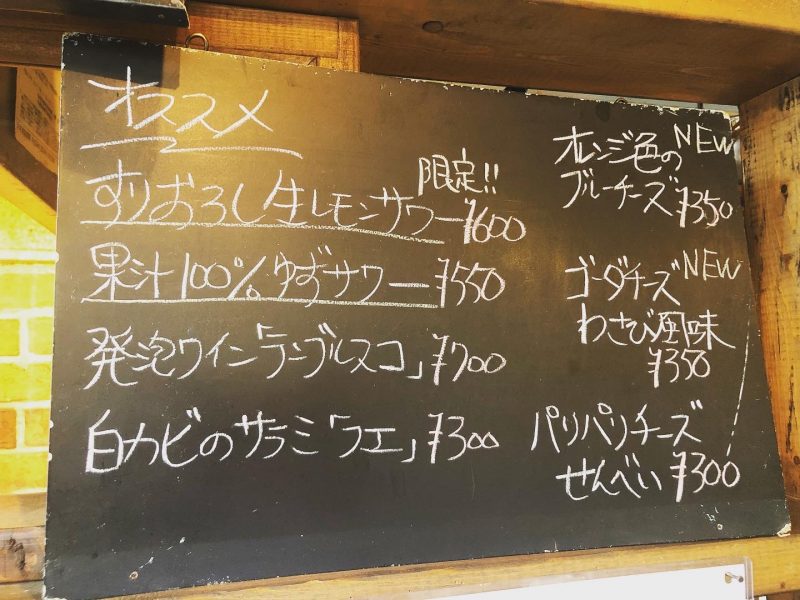 オススメ
限定!!
すりおろし生レモンサワー¥600
果汁100%ゆずサワー¥550
発泡ワイン「ランブルスコ」¥700
白カビのサラミ「フエ」¥300
オレンジ色の NEW
ブルーチーズ¥350
ゴーダチーズ NEW
わさび風味
¥350
パリパリチーズ
せんべい¥300